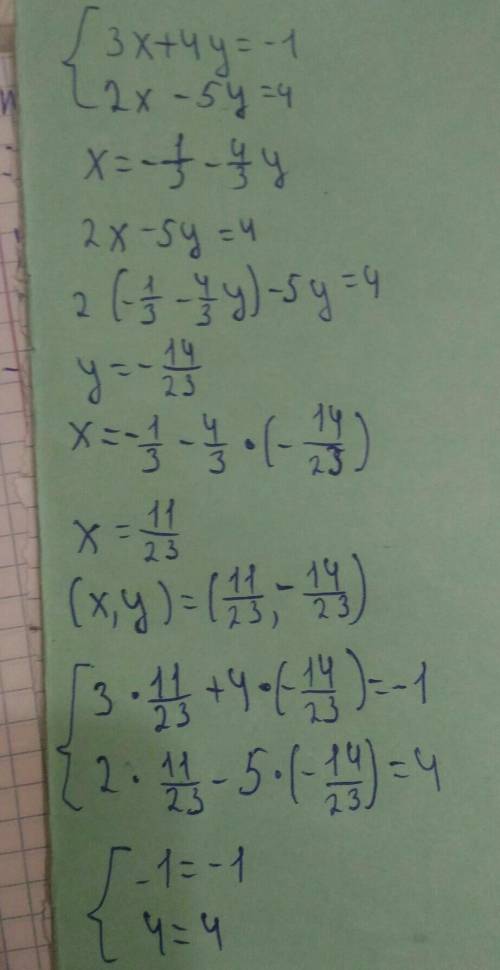 {3x+4y=-1
2x-5y=4
x=-1/3-4/3y
2x-5y=4
2(-1/3-4/3y)-5y=4
y=-14/23
x=-1/3-4/3•(-14/23)
x=11/23
(x,y)=(11/23,-14/23)
{3•11/23+4•(-14/23)=-1
2•11/23-5•(-14/23)=4
{-1=-1
4=4